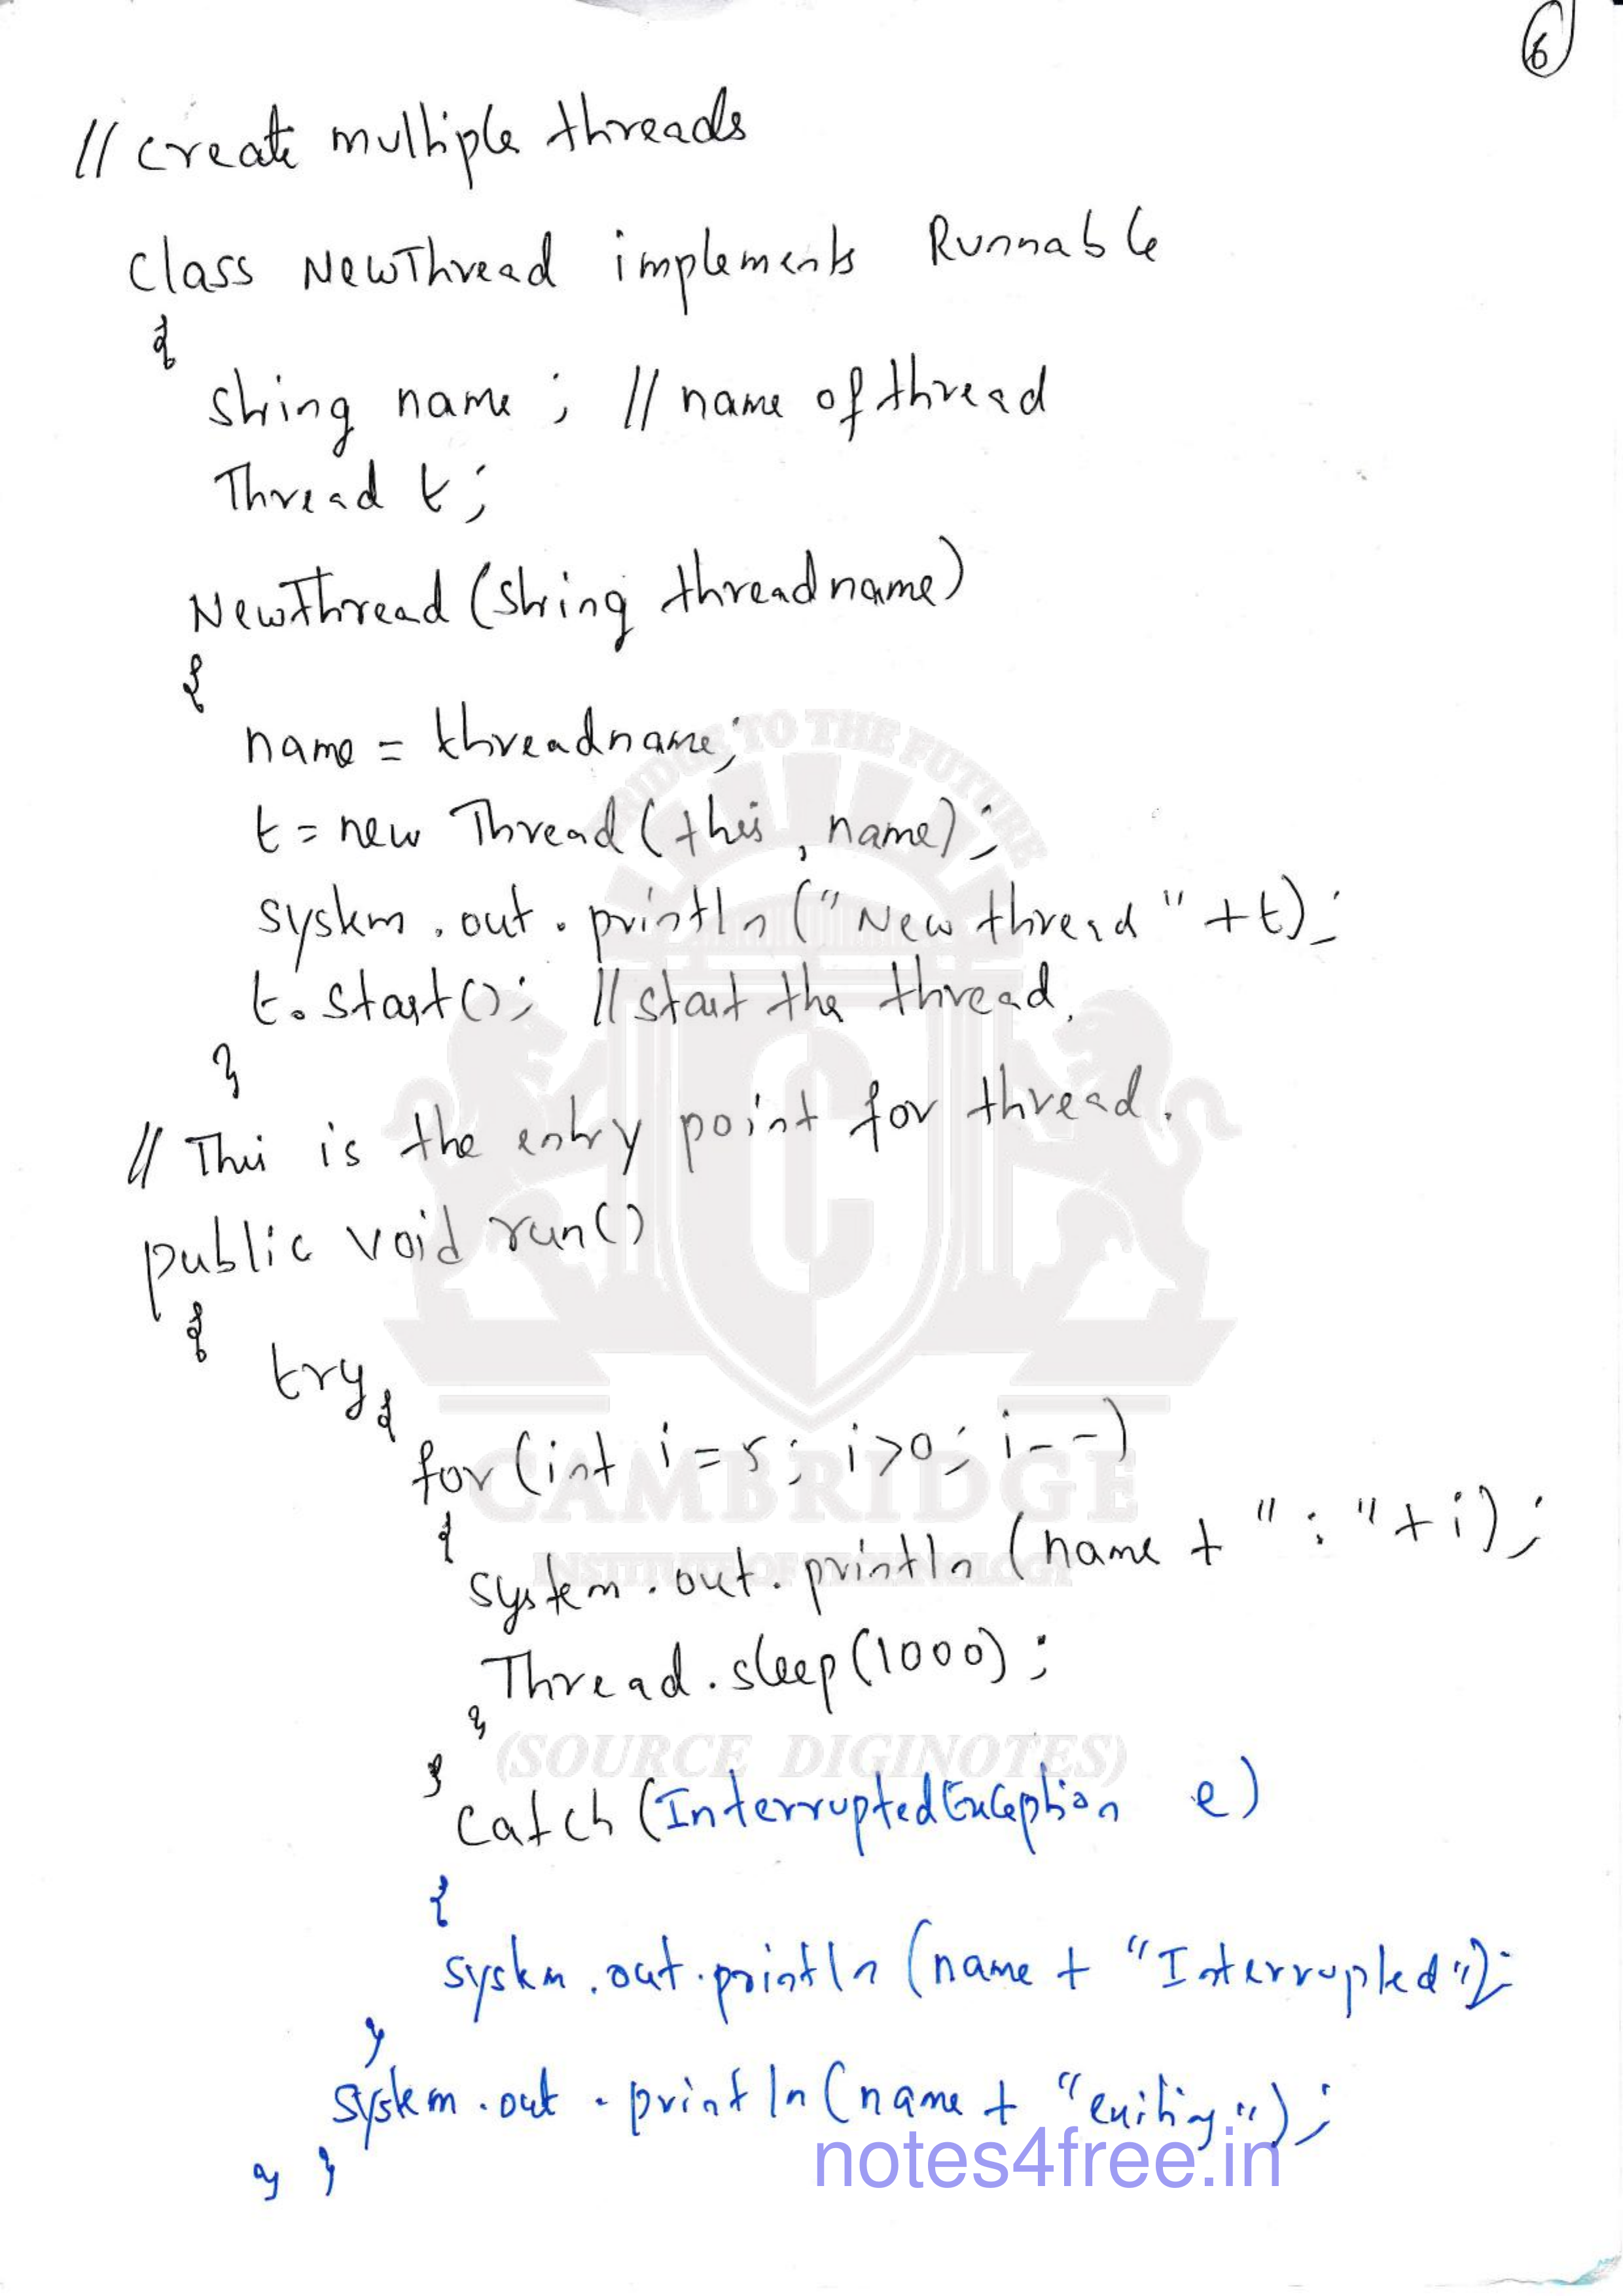 6
// create multiple threads
class NewThread implements Runnable
{
string name ; // name of thread
Thread t ;
NewThread (string threadname)
{
name = threadname;
t = new Thread (this , name) ;
system . out . println ("New thread " + t) ;
t . start () ; // start the thread .
}
// This is the entry point for thread .
public void run ()
{
try {
for (int i = 5 ; i > 0 ; i - - )
{
system . out . println (name + " : " + i) ;
Thread . sleep (1000) ;
}
}
catch (InterruptedException e)
{
system . out . println (name + "Interrupted") ;
}
system . out . println (name + "exiting") ;
} }
BRIDGE TO THE FUTURE
C
CAMBRIDGE
INSTITUTE OF TECHNOLOGY
(SOURCE DIGINOTES)
notes4free.in